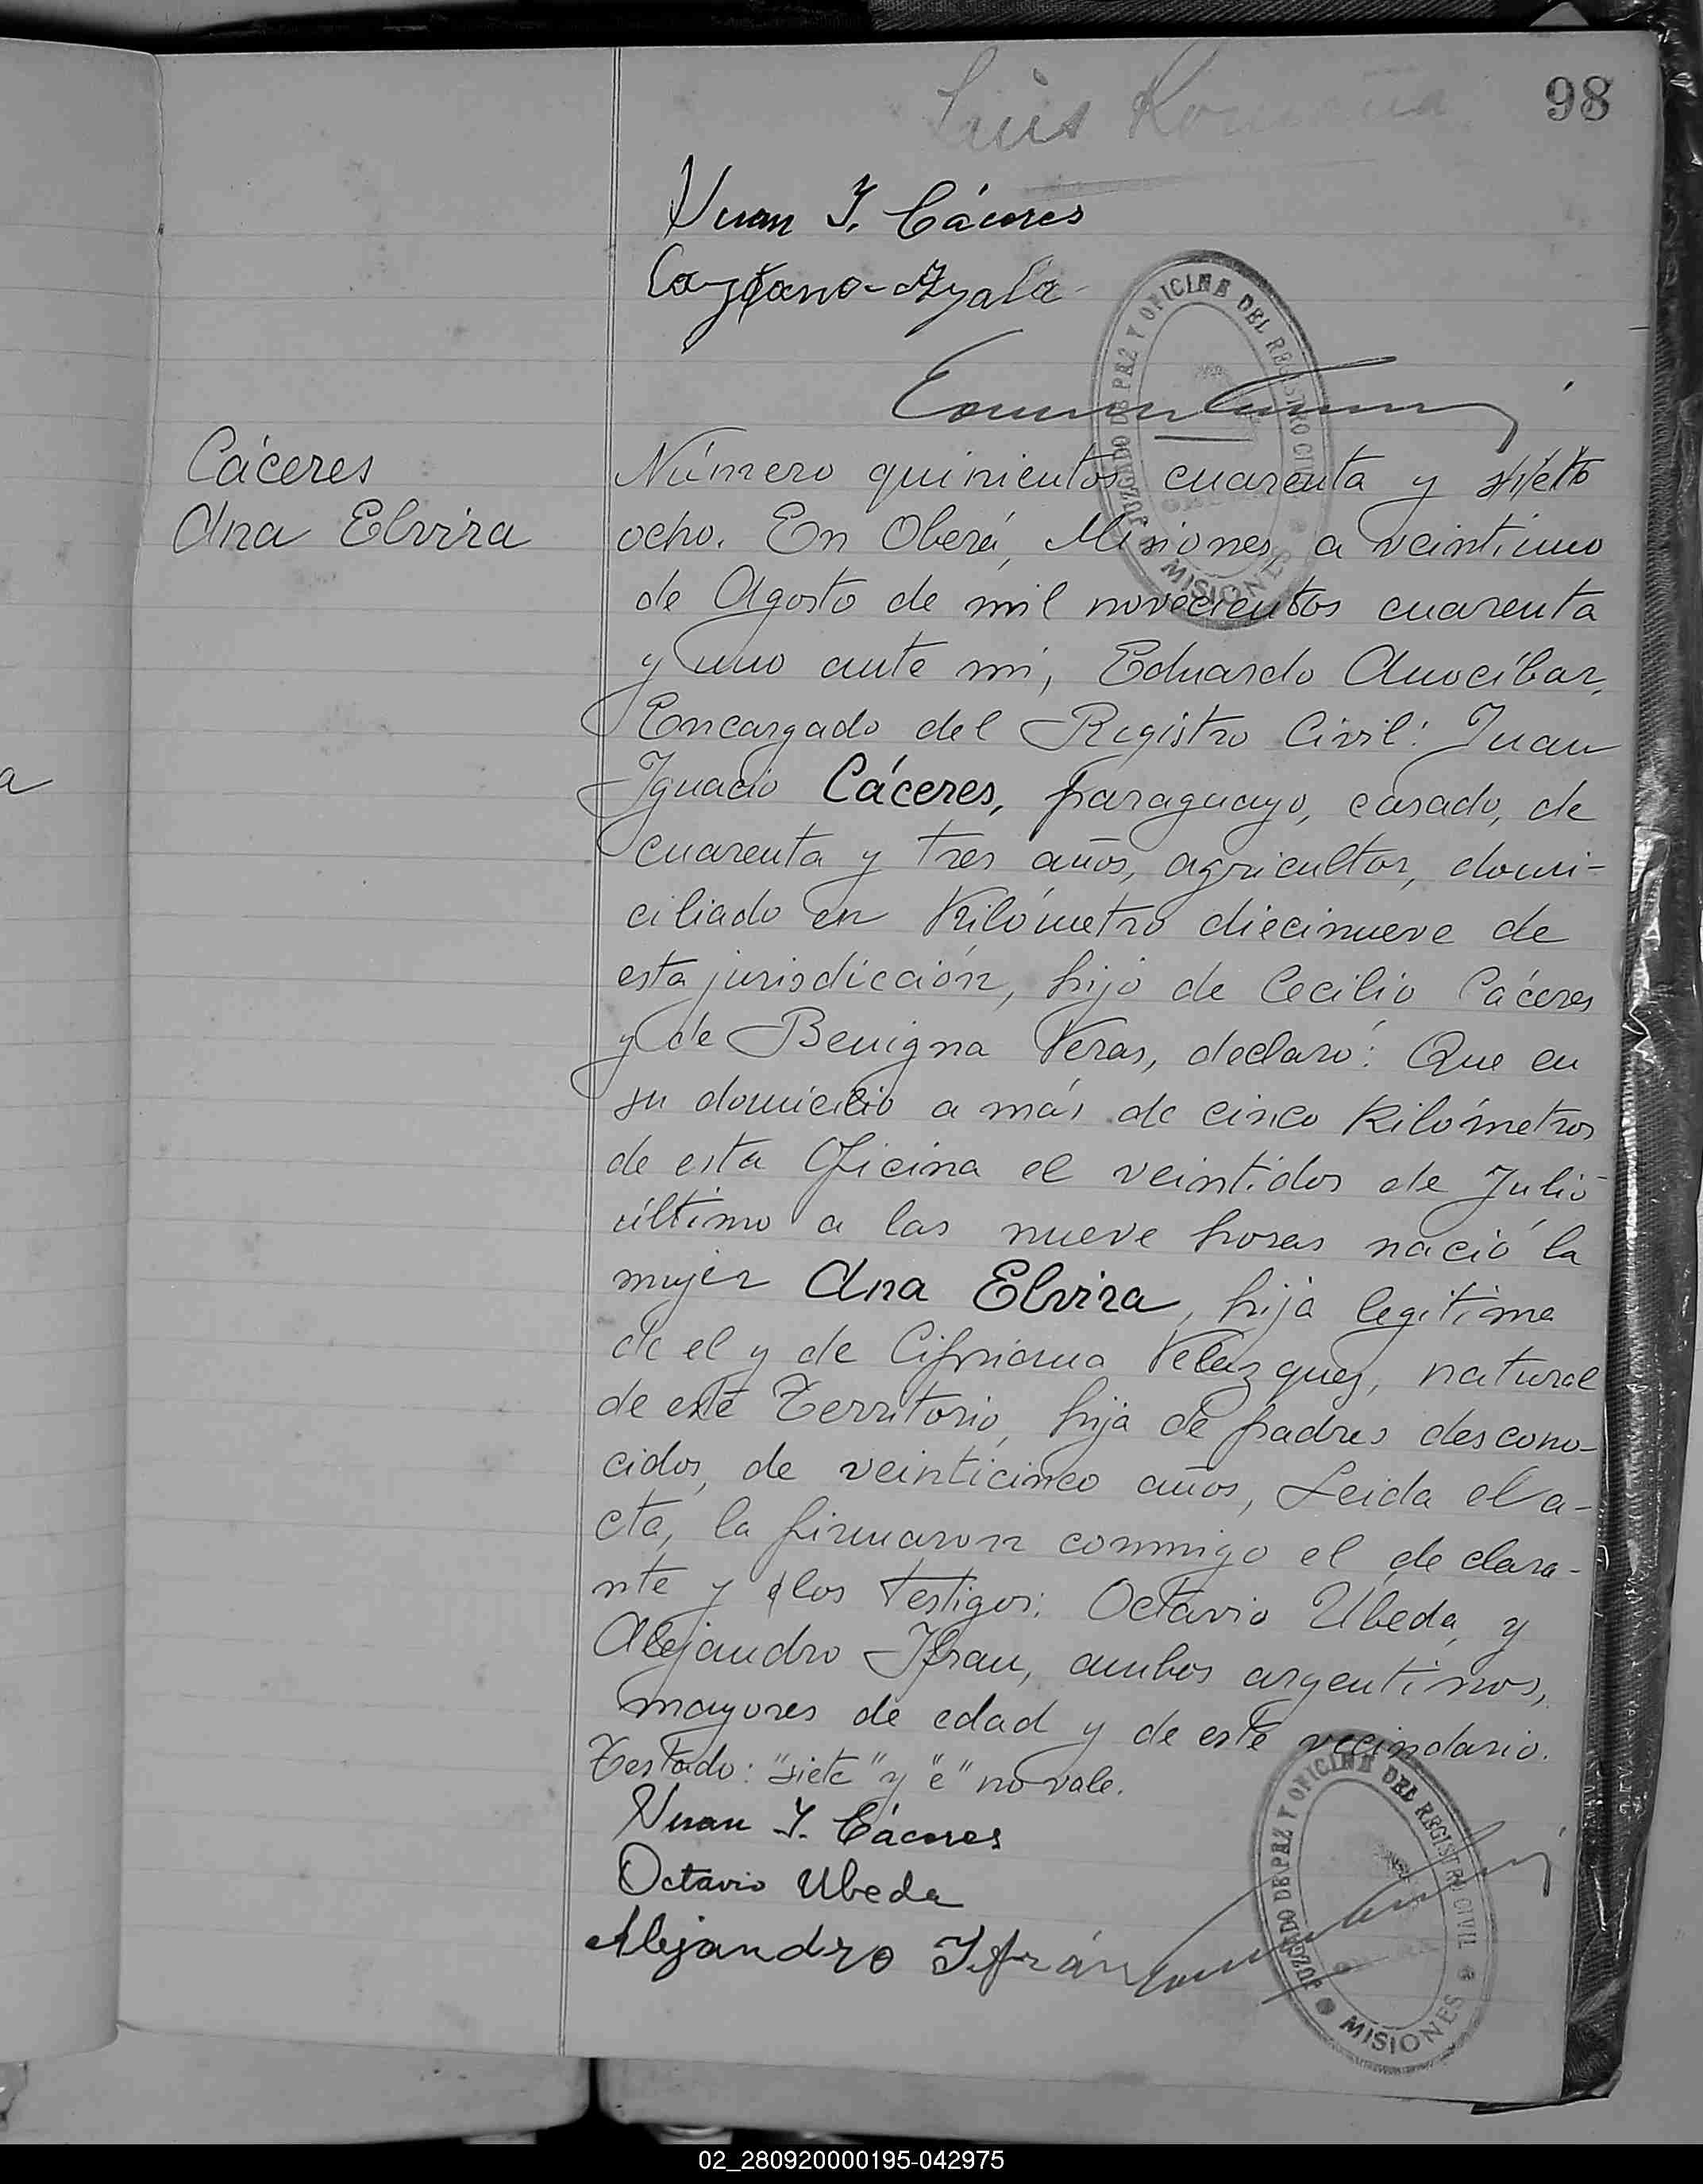 98
Luis
Juan I. Cáceres
Ayala
JUZGADO DE PAZ Y OFICINA DEL REGISTRO CIVIL
MISIONES
Cáceres
Ana Elvira
Número quinientos cuarenta y siete
ocho. En Oberá, Misiones, a veintiuno
de Agosto de mil novecientos cuarenta
y uno ante mi, Eduardo Anocíbar,
Encargado del Registro Civil: Juan
Ignacio Cáceres, paraguayo, casado, de
cuarenta y tres años, agricultor, domi-
ciliado en Kilómetro diecinueve de
esta jurisdicción, hijo de Cecilio Cáceres
y de Benigna Veras, declaró: Que en
su domicilio a más de cinco Kilómetros
de esta Oficina el veintidos de Julio
último a las nueve horas nació la
mujer Ana Elvira, hija legitima
de el y de Cipriana Velazquez, natural
de este Territorio, hija de padres descono-
cidos, de veinticinco años, Leida el a-
cta, la firmaron conmigo el declara-
nte y los testigos: Octavio Ubeda, y
Alejandro Ifran, ambos argentinos,
mayores de edad y de este vecindario.
Testado: "siete" y "e" no vale.
Juan I. Cáceres
Octavio Ubeda
Alejandro Ifrán
JUZGADO DE PAZ Y OFICINA DEL REGISTRO CIVIL
MISIONES
02_280920000195-042975